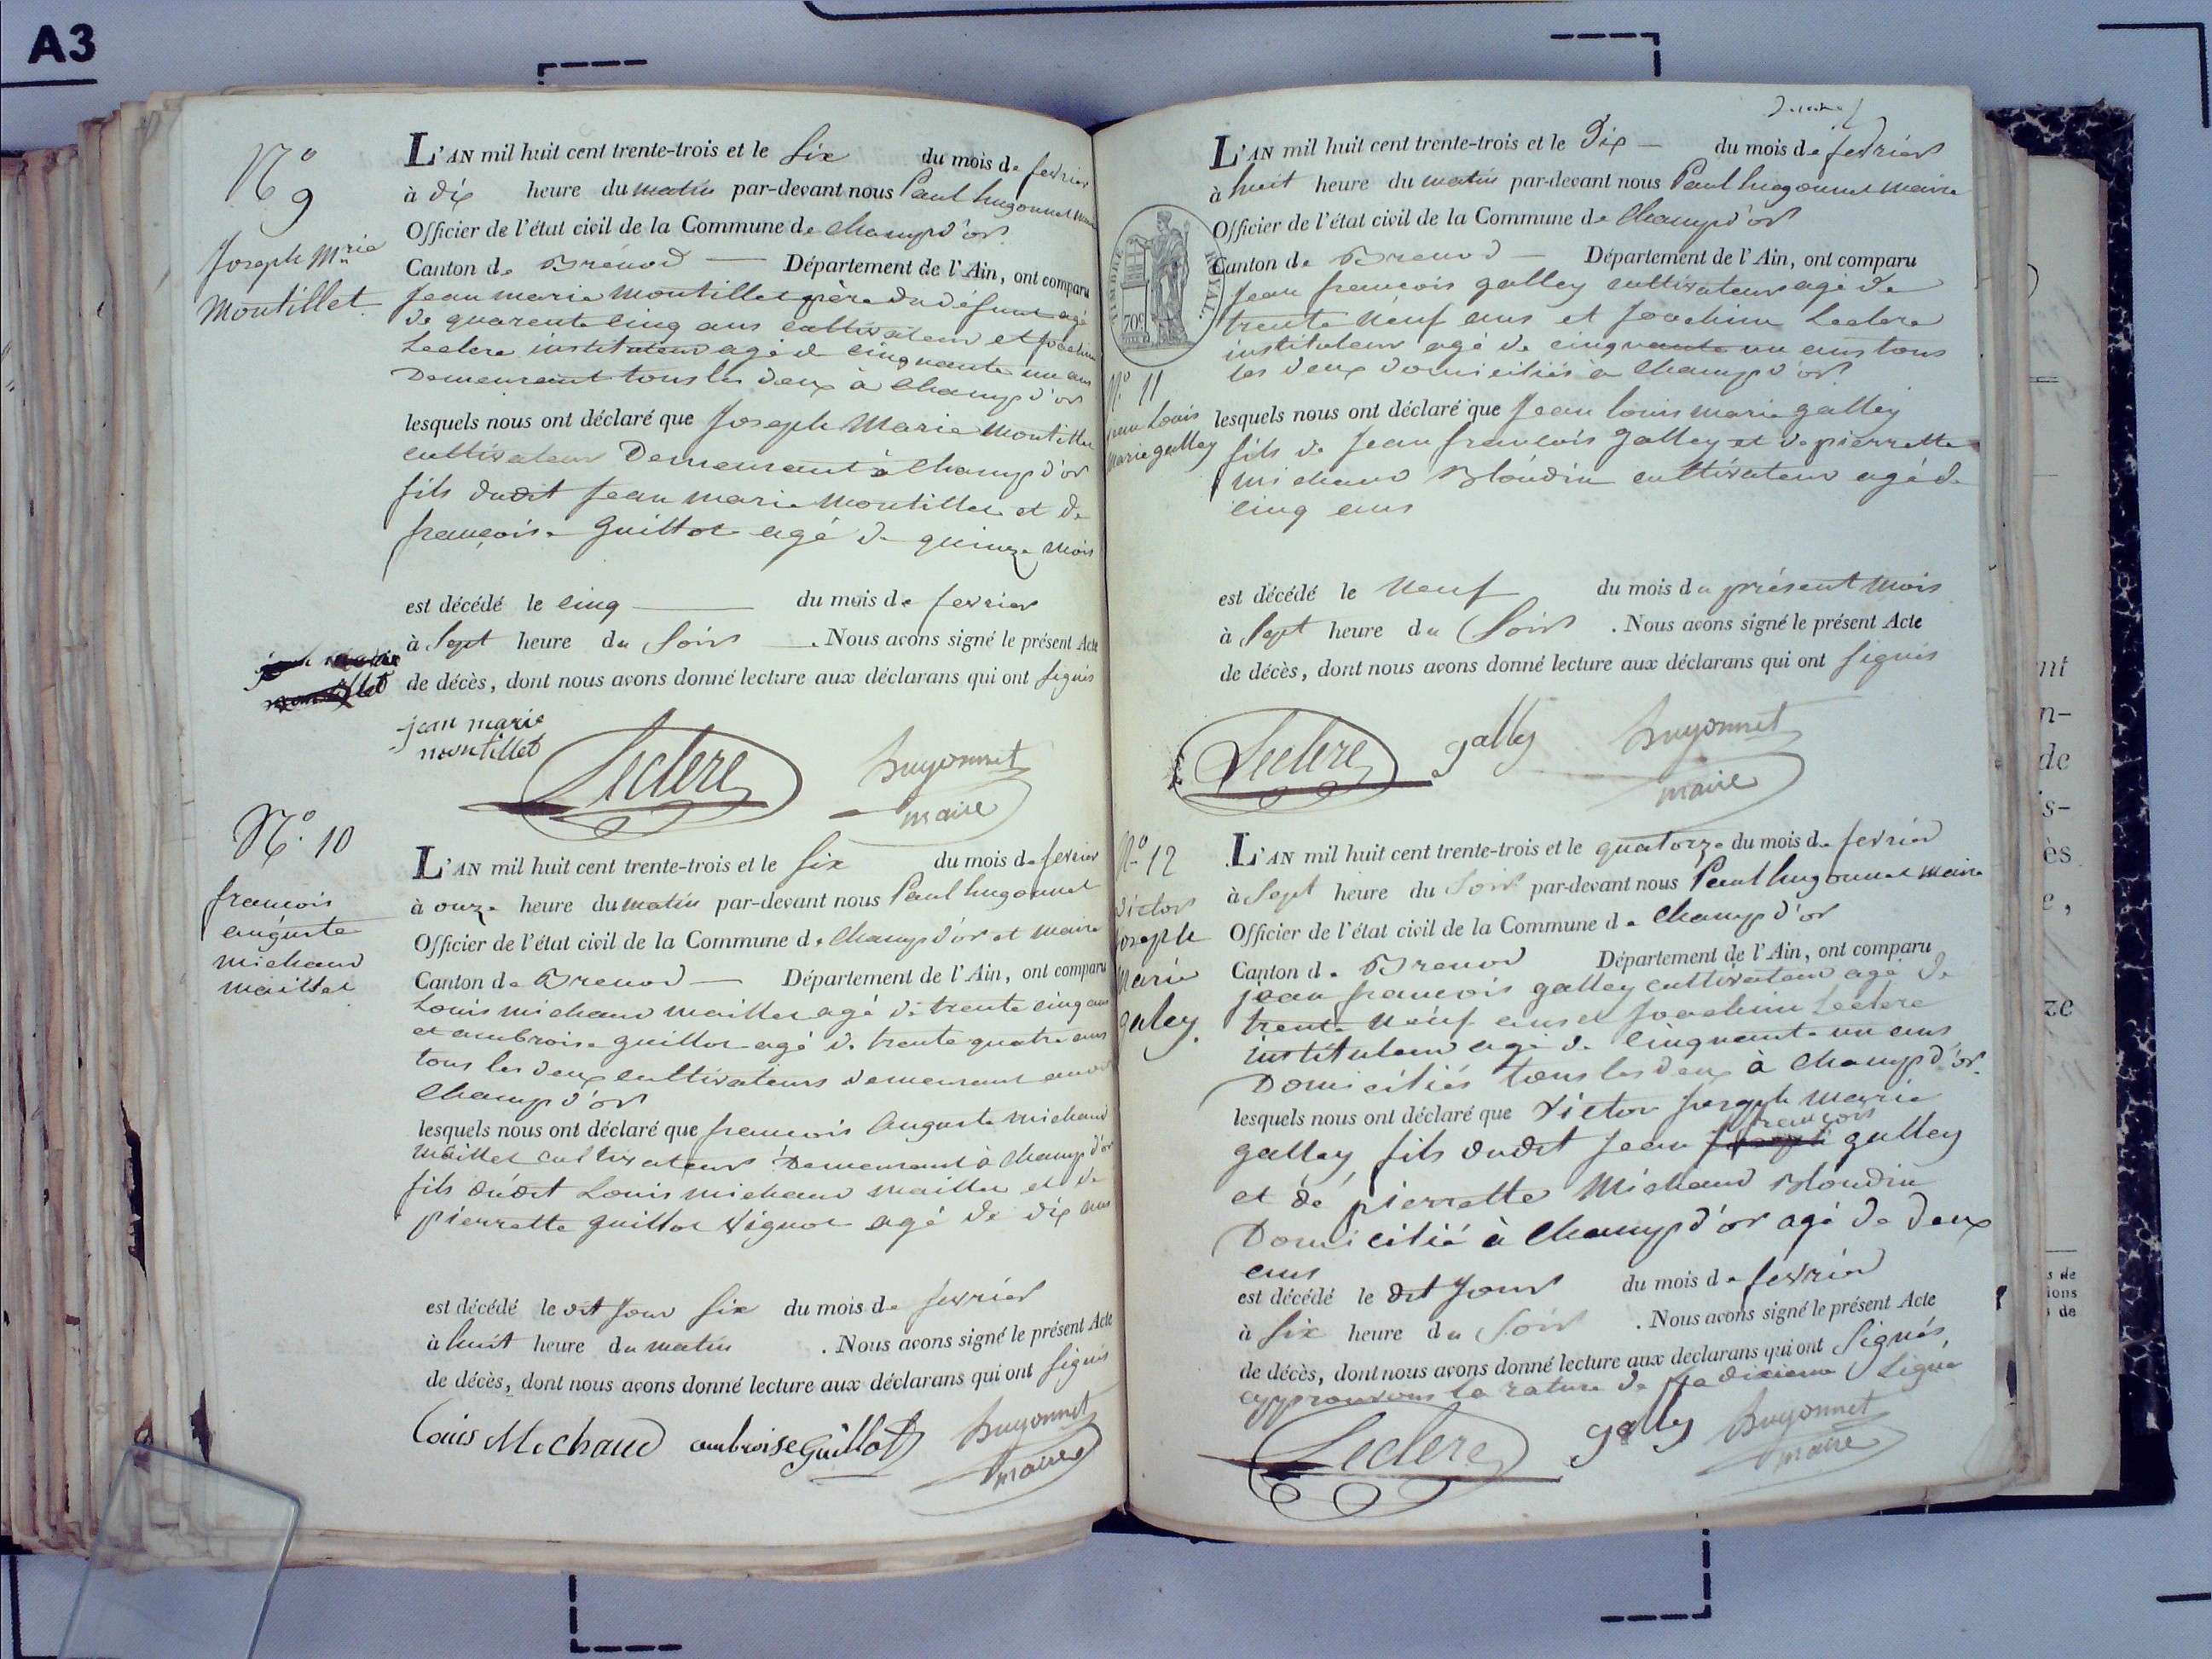 A3
N° 9
Joseph Mrie
Montillet
L'AN mil huit cent trente-trois et le six du mois de fevrier
à dix heure du matin par-devant nous Paul hugonnet maire
Officier de l'état civil de la Commune de Champd'or
Canton de Brénod Département de l'Ain, ont comparu
Jean marie Montillet père du défunt agé
de quarente cinq ans cultivateur et Joachim
Leclere instituteur agé de cinquante un ans
Demeurant tous les deux à Champd'or
lesquels nous ont déclaré que Joseph Marie Montillet
cultivateur Demeurant à Champd'or
fils dudit Jean marie Montillet et de
françoise Guillot agé de quinze mois
est décédé le cinq du mois de fevrier
à Sept heure du Soir . Nous avons signé le présent Acte
de décès, dont nous avons donné lecture aux déclarans qui ont signés
jean marie
montillet
Leclere
hugonnet
maire
N° 10
francois
auguste
michaud
maillet
L'AN mil huit cent trente-trois et le six du mois de fevrier
à onze heure du matin par-devant nous Paul hugonnet
Officier de l'état civil de la Commune de Champd'or et maire
Canton de Brenod Département de l'Ain, ont comparu
Louis michaud maillet agé de trente cinq ans
et ambroise guillot agé de trente quatre ans
tous les deux cultivateurs demeurant
Champd'or
lesquels nous ont déclaré que francois Auguste michaud
maillet cultivateur Demeurant à Champd'or
fils dudit Louis michaud maillet et de
pierrette guillot vignot agé de dix ans
est décédé le dit jour six du mois de fevrier
à huit heure du matin . Nous avons signé le présent Acte
de décès, dont nous avons donné lecture aux déclarans qui ont signés
Louis Michaud ambroise Guillot hugonnet
maire
L'AN mil huit cent trente-trois et le Dix du mois de fevrier
à huit heure du matin par-devant nous Paul hugonnet maire
Officier de l'état civil de la Commune de Champd'or
Canton de Brenod Département de l'Ain, ont comparu
TIMBRE ROYAL.
70c
Jean francois galley cultivateur agé de
trente neuf ans et Joachim Leclere
instituteur agé de cinquante un ans tous
les deux domiciliés à Champd'or
N° 11
jean Louis
Marie galley
lesquels nous ont déclaré que Jean Louis marie galley
fils de Jean francois Galley et de pierrette
michaud Blondin cultivateur agé de
cinq ans
est décédé le neuf du mois du présent mois
à Sept heure du Soir . Nous avons signé le présent Acte
de décès, dont nous avons donné lecture aux déclarans qui ont signés
Leclere gally hugonnet
maire
N° 12
victor
joseph
Marie
galey.
L'AN mil huit cent trente-trois et le quatorze du mois de fevrier
à Sept heure du Soir par-devant nous Paul hugonnet maire
Officier de l'état civil de la Commune de Champd'or
Canton de Brenod Département de l'Ain, ont comparu
jean francois galley cultivateur agé de
trente neuf ans et Joachim Leclere
instituteur agé de cinquante un ans
Domiciliés tous les deux à Champd'or
lesquels nous ont déclaré que Victor Joseph Marie
galley fils dudit Jean francois galley
et de pierrette Michaud Blondin
Domicilié à Champd'or agé de deux
ans
est décédé le dit jour du mois de fevrier
à six heure du Soir . Nous avons signé le présent Acte
de décès, dont nous avons donné lecture aux declarans qui ont Signés,
approuvons la rature de la dixieme Ligne
Leclere gally hugonnet
maire